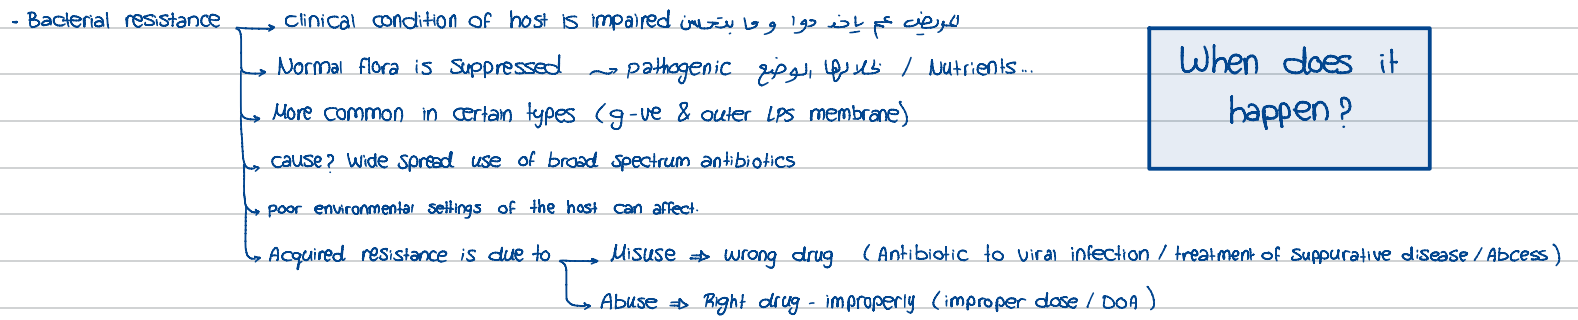 - Bacterial resistance → clinical condition of host is impaired المريض عم ياخد دوا و ما بتحسن
→ Normal flora is suppressed ⤳ pathogenic خلالها الوضع / Nutrients...
→ More common in certain types (g-ve & outer LPS membrane)
→ cause? wide spread use of broad spectrum antibiotics
→ poor environmental settings of the host can affect.
→ Acquired resistance is due to → Misuse ⇒ wrong drug (Antibiotic to viral infection / treatment of suppurative disease / Abcess)
→ Abuse ⇒ Right drug - improperly (improper dose / DOA)
When does it
happen?